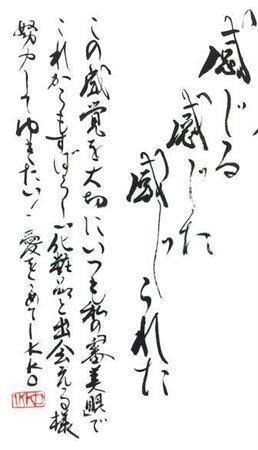 感じる
感じた
感じられた
この感覚を大切にいつも私の審美眼で
これからもすばらしい化粧品と出会える様
努力してゆきたい！愛をこめてIKKO
IKKO